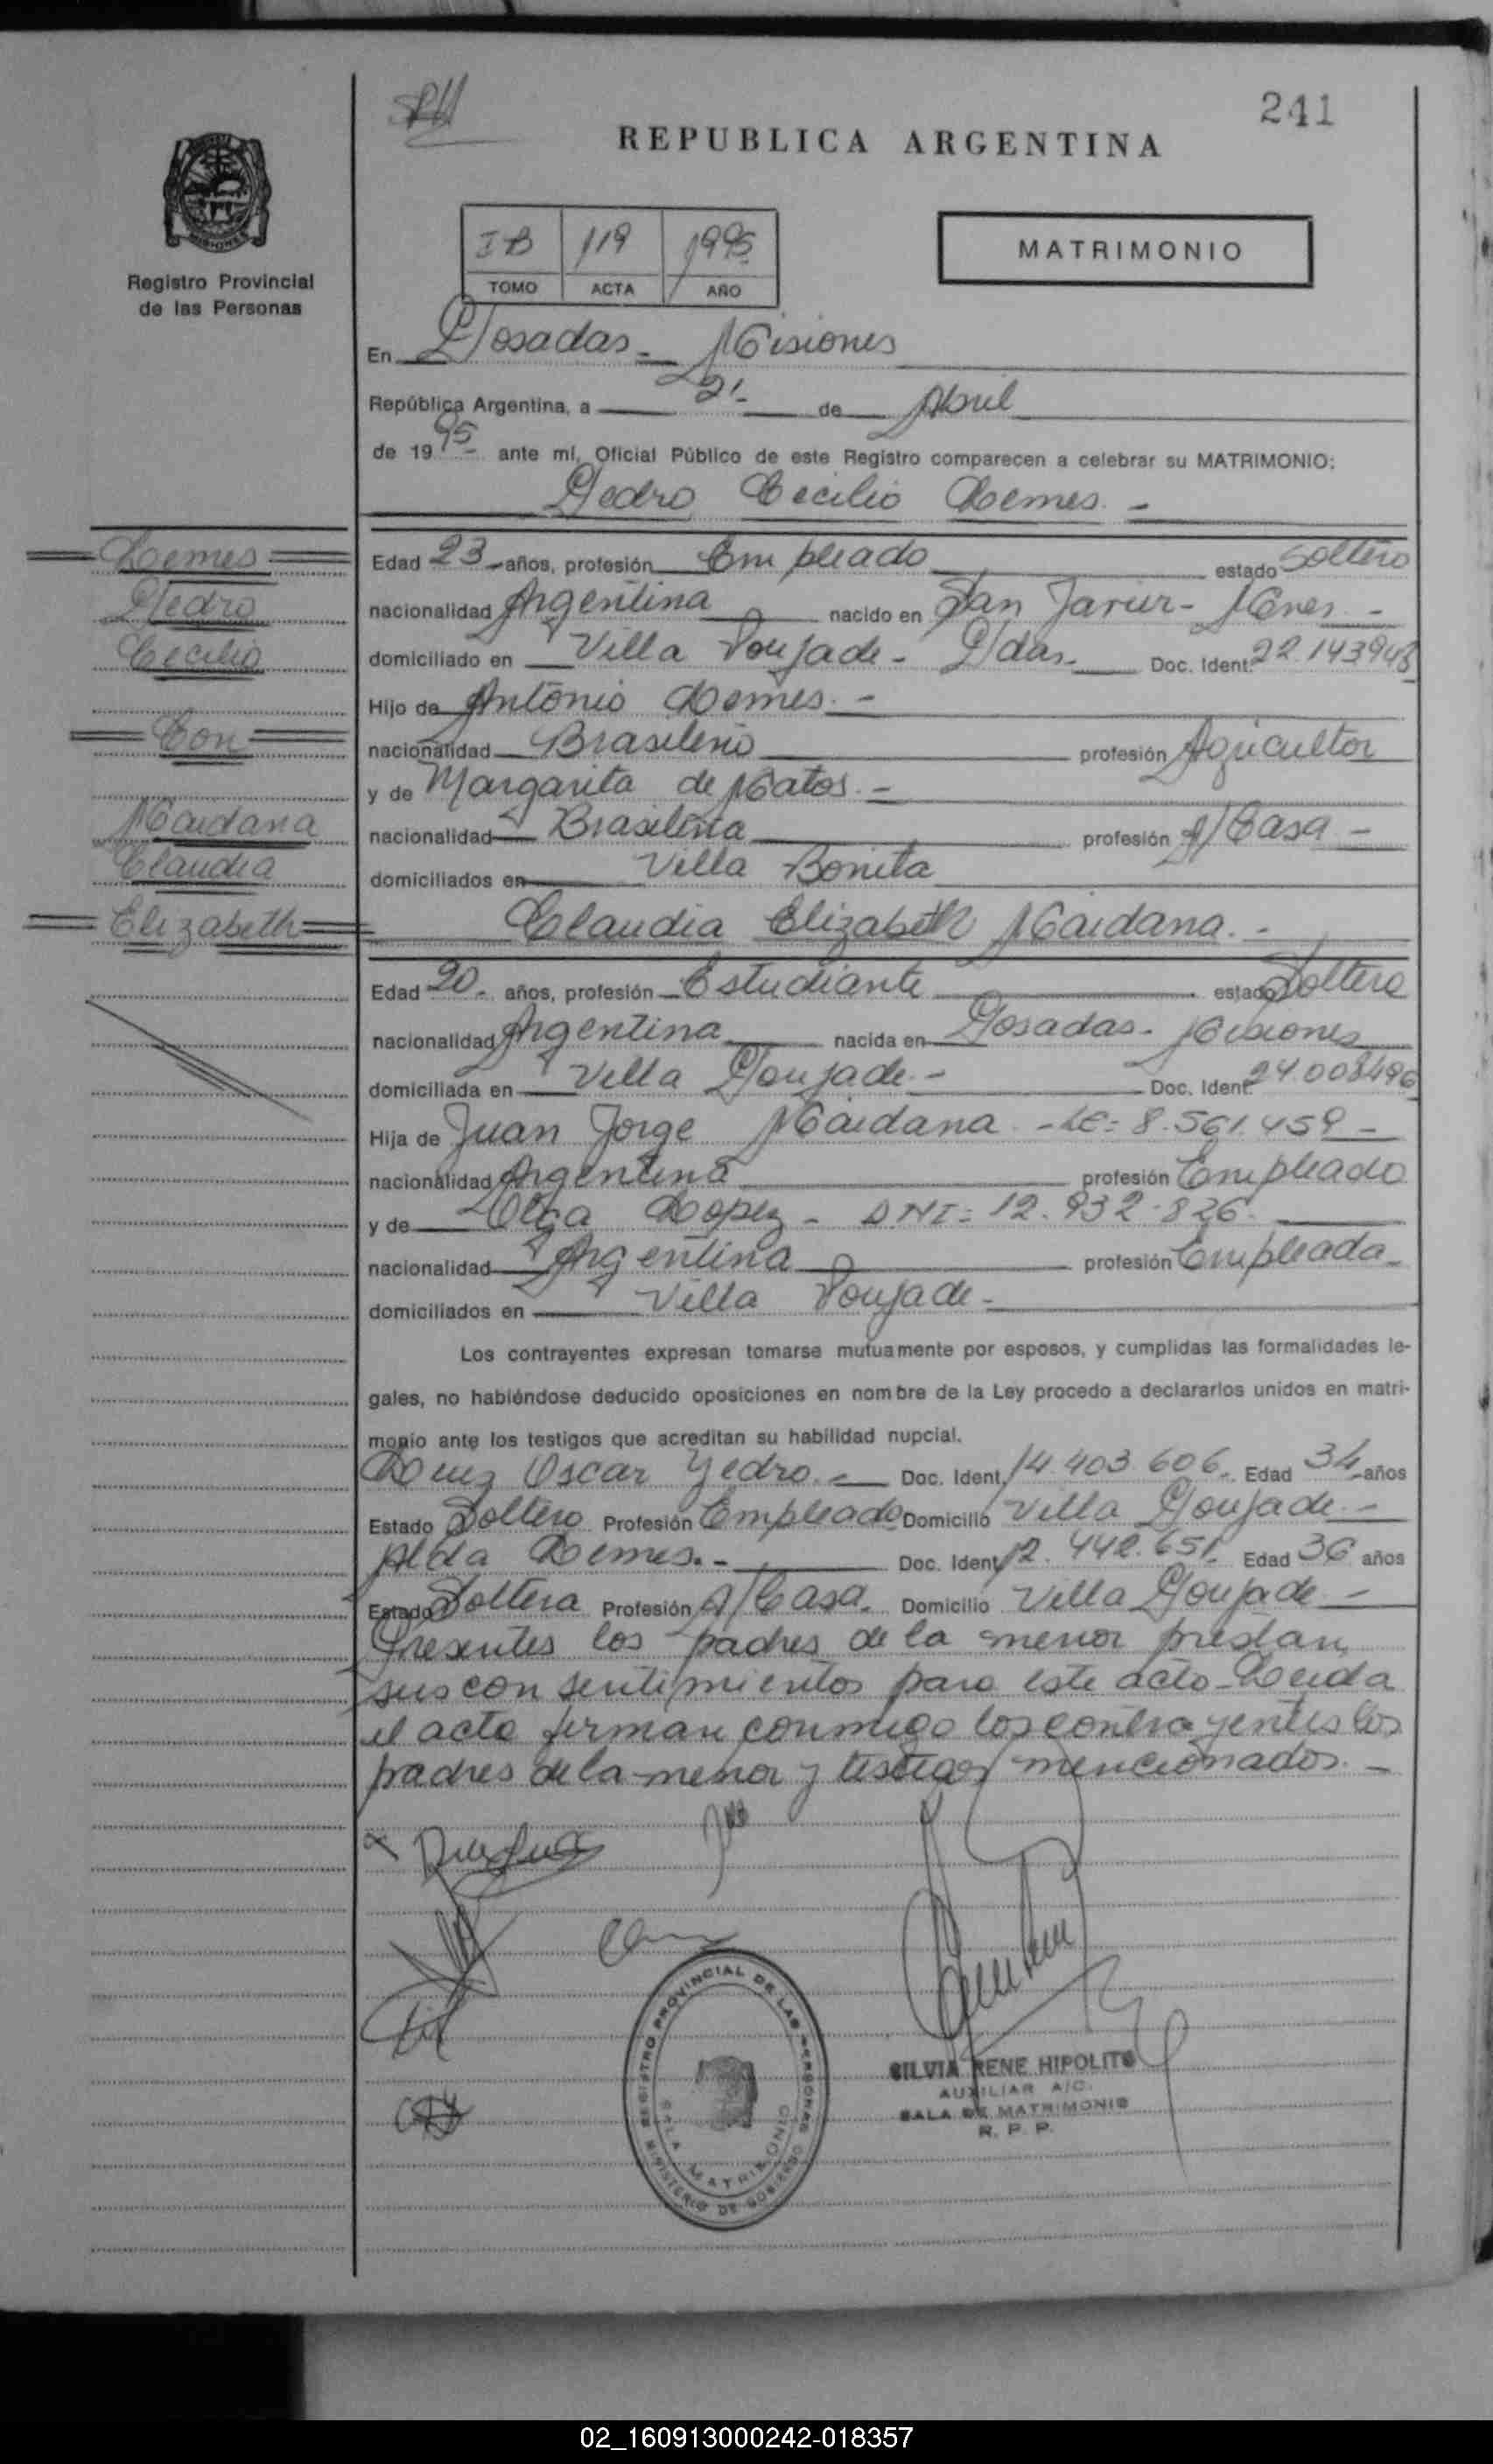 241
REPUBLICA ARGENTINA
MISIONES
Registro Provincial
de las Personas
IB 119 1995
TOMO ACTA AÑO
MATRIMONIO
En Posadas - Misiones
República Argentina, a 21 de Abril
de 1995 ante mí, Oficial Público de este Registro comparecen a celebrar su MATRIMONIO:
Pedro Cecilio Lemes. -
Lemes
Pedro
Cecilio
Con
Maidana
Claudia
Elizabeth
Edad 23 años, profesión Empleado estado Soltero
nacionalidad Argentina nacido en San Javier - Mnes -
domiciliado en Villa Poujade - Pdas. Doc. Ident. 22.143948
Hijo de Antonio Lemes. -
nacionalidad Brasileño profesión Agricultor
y de Margarita de Matos. -
nacionalidad Brasileña profesión A/Casa -
domiciliados en Villa Bonita
Claudia Elizabeth Maidana. -
Edad 20 - años, profesión Estudiante estado Soltera
nacionalidad Argentina nacida en Posadas - Misiones
domiciliada en Villa Poujade. - Doc. Ident. 24.008496
Hija de Juan Jorge Maidana - LE = 8.561.459 -
nacionalidad Argentina profesión Empleado
y de Olga Lopez - DNI = 12.932.826.
nacionalidad Argentina profesión Empleada
domiciliados en Villa Poujade -
Los contrayentes expresan tomarse mutuamente por esposos, y cumplidas las formalidades le-
gales, no habiéndose deducido oposiciones en nombre de la Ley procedo a declararlos unidos en matri-
monio ante los testigos que acreditan su habilidad nupcial.
Oscar Pedro. - Doc. Ident. 14.403.606 Edad 34 años
Estado Soltero Profesión Empleado Domicilio Villa Poujade. -
Alda Lemes. - Doc. Ident. 12.442.651 Edad 36 años
Estado Soltera Profesión A/Casa. Domicilio Villa Poujade -
Presentes los padres de la menor prestan
sus consentimientos para este acto - Leida
el acta firman conmigo los contrayentes los
padres de la menor y testigos mencionados. -
REGISTRO PROVINCIAL DE LAS PERSONAS
SALA MATRIMONIO
MINISTERIO DE GOBIERNO
SILVIA RENE HIPOLITO
AUXILIAR A/C.
SALA DE MATRIMONIO
R. P. P.
02_160913000242-018357